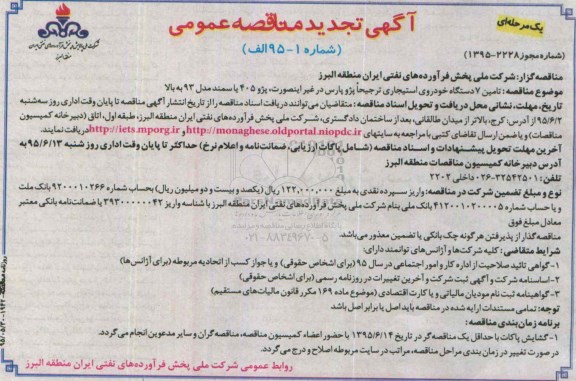 یک مرحله‌ای
آگهی تجدید مناقصه عمومی
(شماره ۱-۹۵الف)
شرکت ملی پخش فرآورده‌های نفتی ایران
منطقه البرز
(شماره مجوز ۲۲۲۸-۱۳۹۵)
مناقصه‌گزار: شرکت ملی پخش فرآورده‌های نفتی ایران منطقه البرز
موضوع مناقصه: تامین ۷ دستگاه خودروی استیجاری ترجیحاً پژو پارس در غیر اینصورت، پژو ۴۰۵ یا سمند مدل ۹۳ به بالا
تاریخ، مهلت، نشانی محل دریافت و تحویل اسناد مناقصه: متقاضیان می‌توانند دریافت اسناد مناقصه را از تاریخ انتشار آگهی مناقصه تا پایان وقت اداری روز سه‌شنبه
۹۵/۶/۲ از آدرس: کرج، بالاتر از میدان طالقانی، بعد از ساختمان دادگستری، شرکت ملی پخش فرآورده‌های نفتی ایران منطقه البرز، طبقه اول، اتاق (دبیرخانه کمیسیون
مناقصات) و با ضمن ارسال تقاضای کتبی با مراجعه به سایتهای http://monaghese.oldportal.niopdc.ir و http://iets.mporg.ir دریافت نمایند.
آخرین مهلت تحویل پیشنهادات و اسناد مناقصه (شامل پاکات ارزیابی، ضمانت‌نامه و اعلام نرخ) حداکثر تا پایان وقت اداری روز شنبه ۹۵/۶/۱۳ به
آدرس دبیرخانه کمیسیون مناقصات منطقه البرز
تلفن: ۳۲۵۴۲۵۰۱-۰۲۶ داخلی ۲۲۰۲
نوع و مبلغ تضمین شرکت در مناقصه: واریز سپرده نقدی به مبلغ ۱۲۲,۰۰۰,۰۰۰ ریال (یکصد و بیست و دو میلیون ریال) بحساب شماره ۹۲۰۰۰۱۰۲۶۶ بانک ملت
و یا حساب شماره ۴۱۲۰۰۱۰۲۰۰۰۰۵ بانک ملی بنام شرکت ملی پخش فرآورده‌های نفتی ایران منطقه البرز با شناسه واریز ۳۹۳۰۰۰۰۰۰۴۲ یا ضمانت‌نامه بانکی معتبر
معادل مبلغ فوق
مناقصه‌گذار از پذیرفتن هرگونه چک بانکی یا تضمین معذور می‌باشد.
شرایط متقاضی: کلیه شرکت‌ها و آژانس‌های توانمند دارای:
۱-گواهی تائید صلاحیت از اداره کار و امور اجتماعی در سال ۹۵ (برای اشخاص حقوقی) و یا جواز کسب از اتحادیه مربوطه (برای آژانس‌ها)
۲-اساسنامه شرکت و آگهی ثبت شرکت و آخرین تغییرات در روزنامه رسمی (برای اشخاص حقوقی)
۳-گواهینامه ثبت نام مودیان مالیاتی و یا کارت اقتصادی (موضوع ماده ۱۶۹ مکرر قانون مالیات‌های مستقیم)
توجه: تمامی مستندات ارایه شده در مناقصه باید اصل یا برابر اصل باشد
برنامه زمان‌بندی مناقصه:
۱-گشایش پاکات با حداقل یک مناقصه‌گر در تاریخ ۱۳۹۵/۶/۱۴ با حضور اعضاء کمیسیون مناقصه، مناقصه‌گران و سایر مدعوین انجام می‌گردد.
در صورت تغییر در زمان بندی مراحل مناقصه، مراتب در سایت مربوطه اصلاح و درج می‌گردد.
روابط عمومی شرکت ملی پخش فرآورده‌های نفتی ایران منطقه البرز
۰۲۱-۸۸۳۴۹۶۷۰-۵